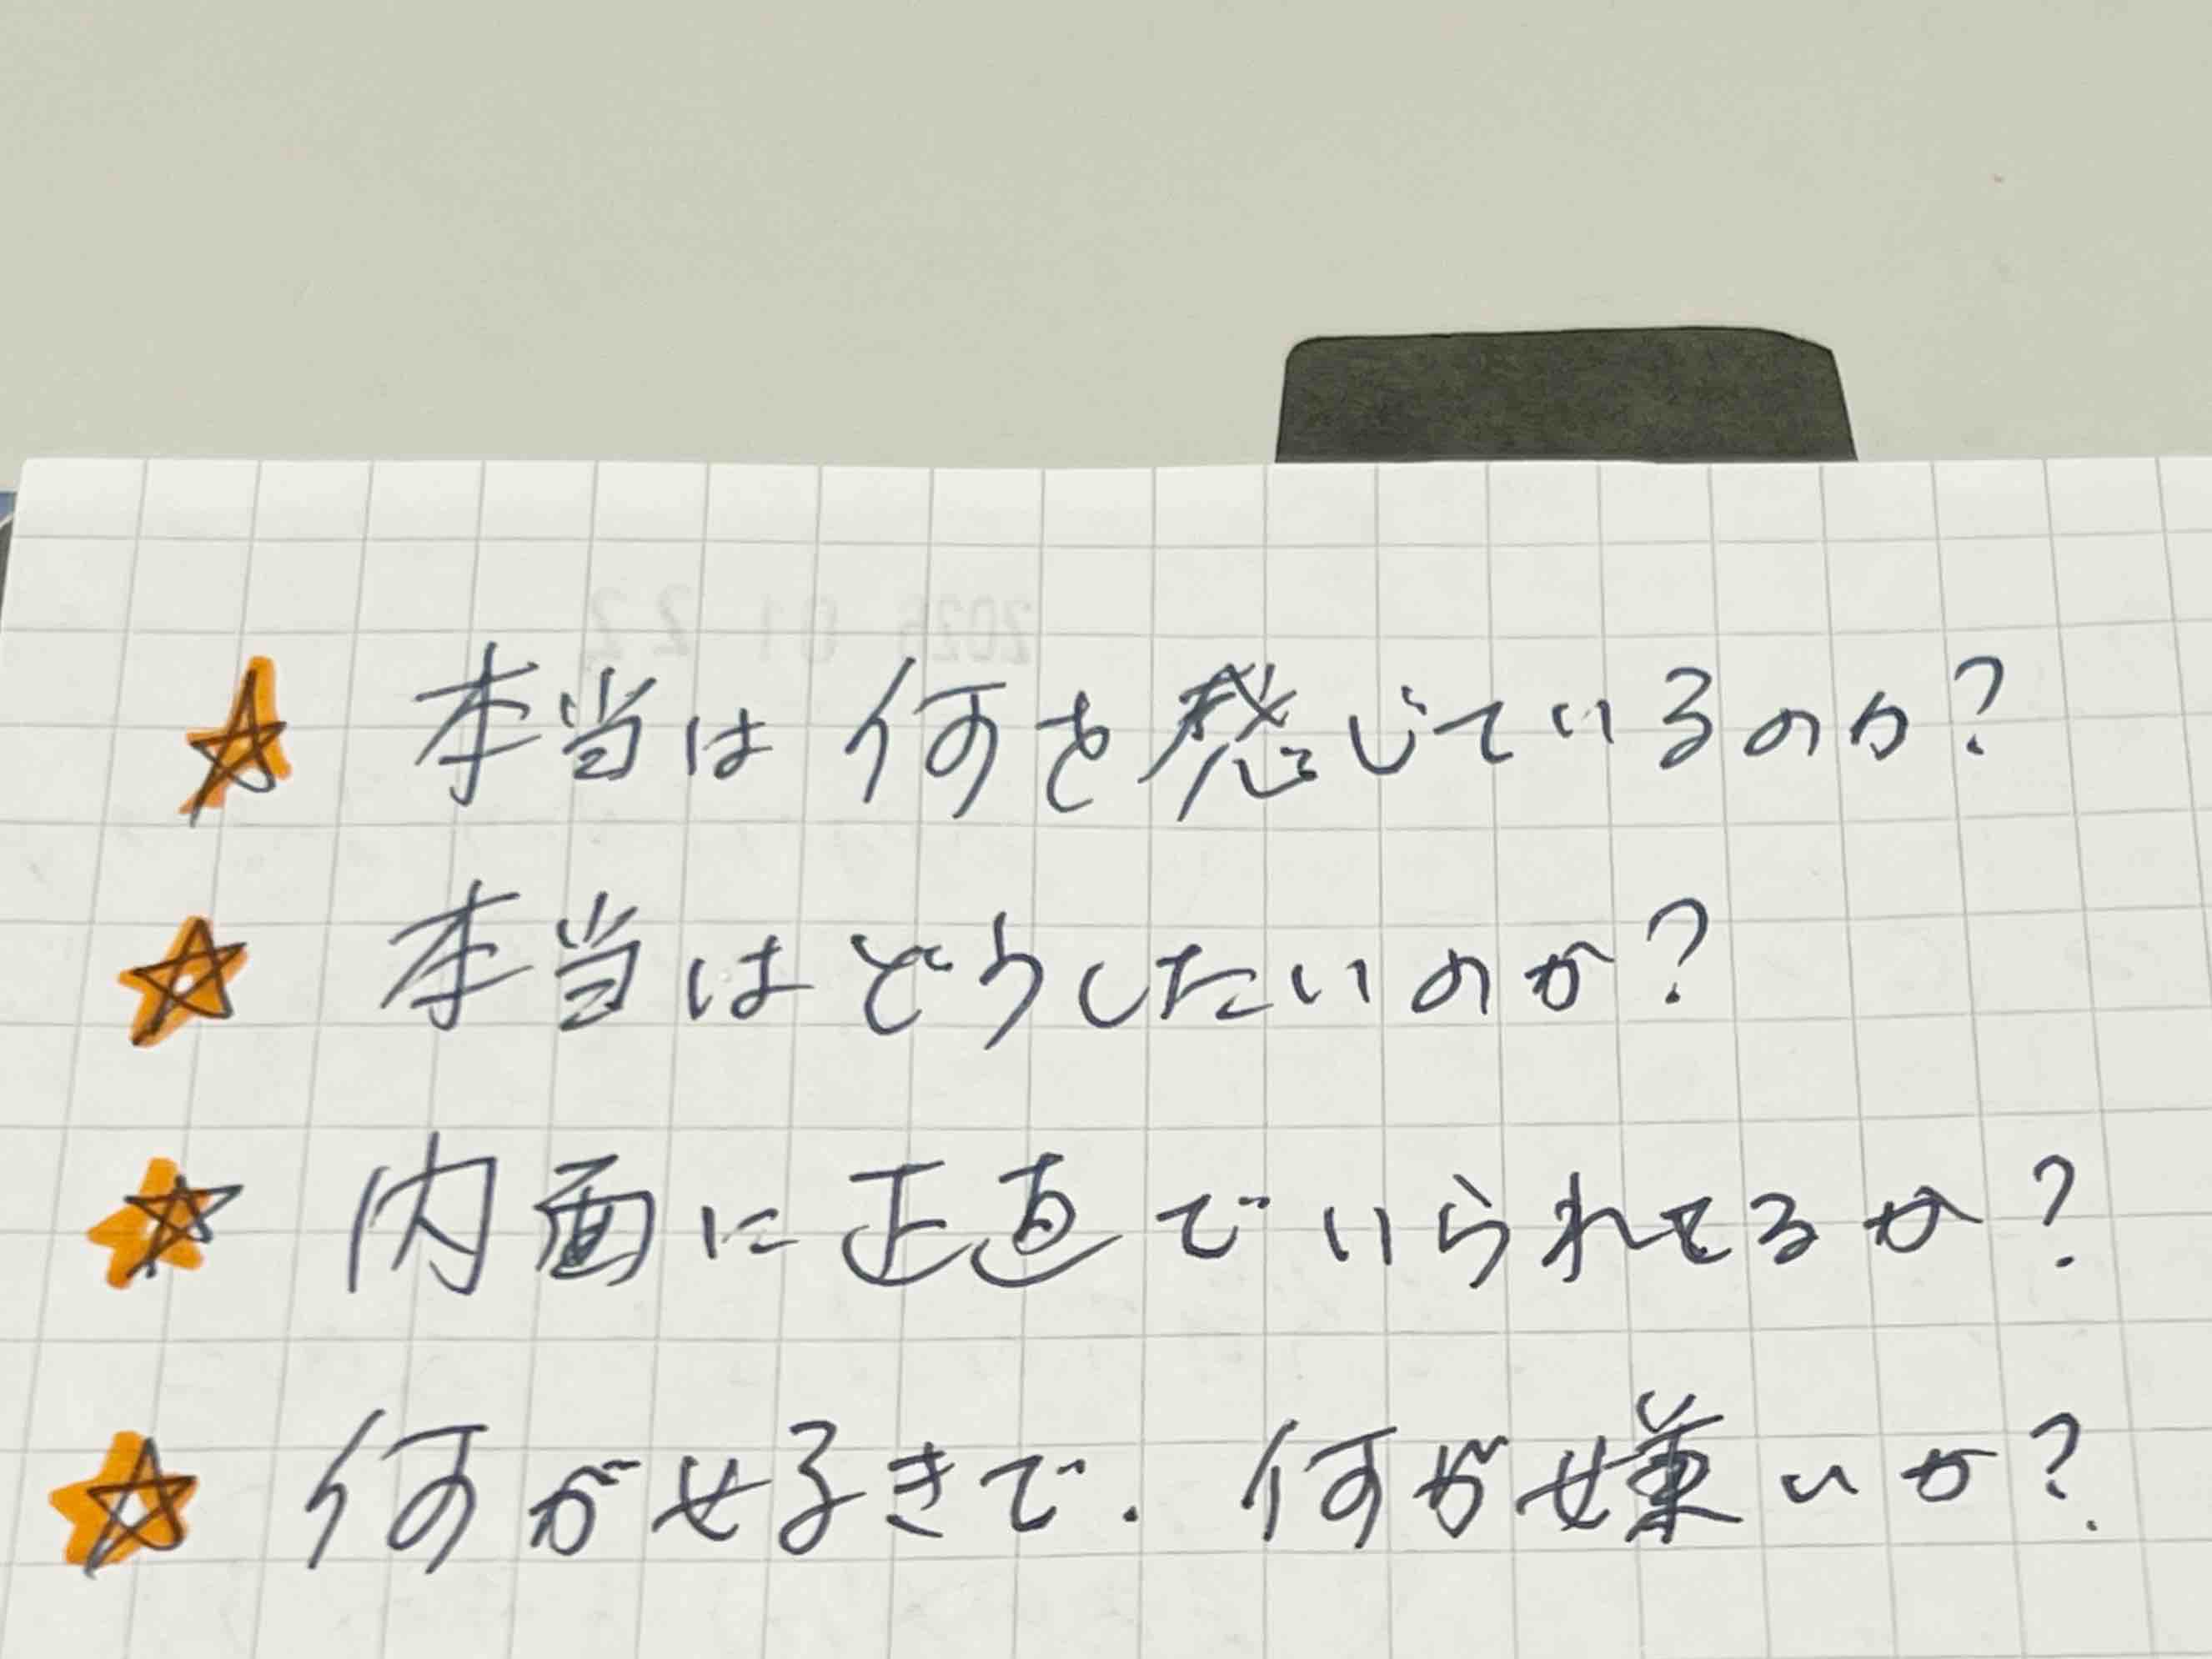 2026 01 22
☆ 本当は何を感じているのか?
☆ 本当はどうしたいのか?
☆ 内面に正直でいられてるか?
☆ 何が好きで、何が嫌いか?